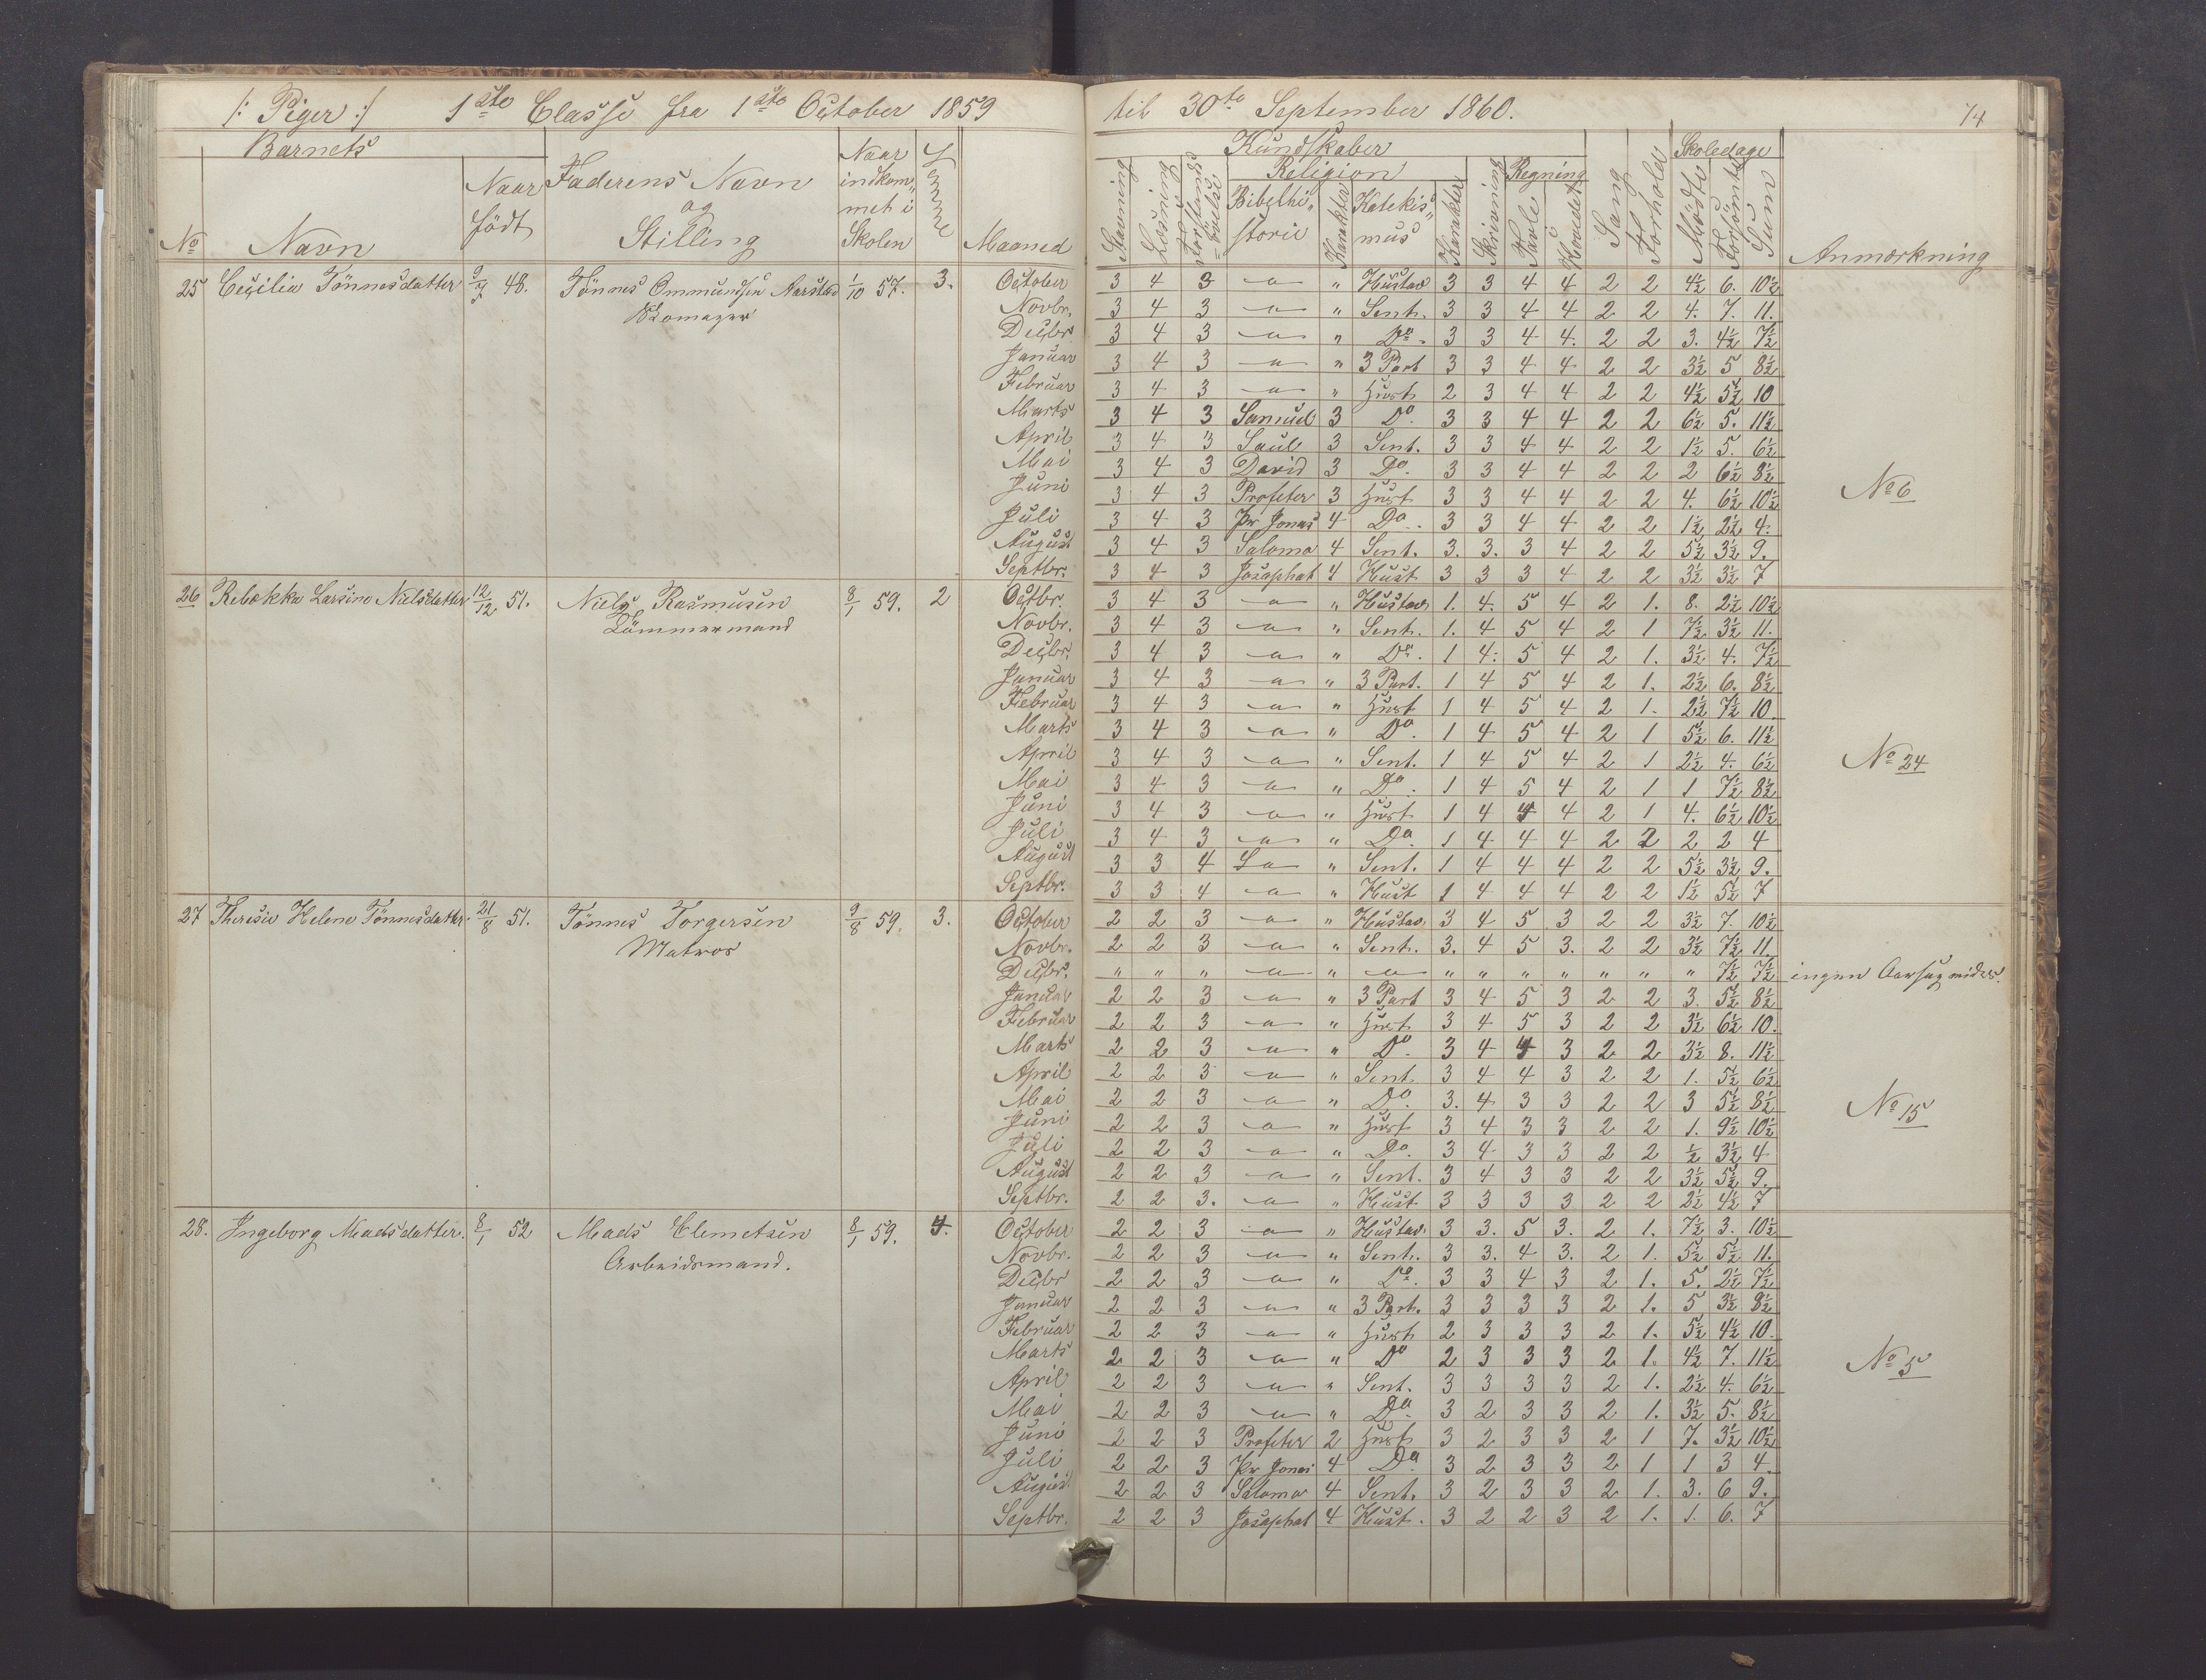 /: Piger :/ 1ste Classe fra 1ste October 1859 til 30te September 1860. 74
Barnets
No Navn Naar født Faderens Navn og Stilling Naar indkommet i Skolen Maaned
Kundskaber
Religion Regning Skoledage
Stavning Læsning Bibelhistorie Karakter Katekismus Karakter Skrivning Tavle Hovedet Sang Forhold Mødte Forsømte Sum Anmærkning
25 Cecilia Tönnesdatter 9/7 48. Tönnes Ommundsen Aarstad 1/10 57. 3. October 3 4 3 -a- " Hustav 3 3 4 4 2 2 4½ 6. 10½
Novbr. 3 4 3 -a- " Sent. 3 3 4 4 2 2 4. 7. 11.
Decbr. 3 4 3 -a- " Do. 3 3 4 4. 2 2 3. 4½ 7½
Januar 3 4 3 -a- " 3 Part 3 3 4 4 2 2 3½ 5 8½
Februar 3 4 3 -a- " Hust 2 3 4 4 2 2 4½ 5½ 10
Marts 3 4 3 Samuel 3 Do. 3 3 4 4 2 2 6½ 5. 11½
April 3 4 3 Saul 3 Sent. 3 3 4 4 2 2 1½ 5. 6½
Mai 3 4 3 David 3 Do. 3 3 4 4 2 2 2 6½ 8½
Juni 3 4 3 Profeter 3 Hust 3 3 4 4 2 2 4. 6½ 10½ No 6
Juli 3 4 3 Pr Jonas 4 Do. 3 3 4 4 2 2 1½ 2½ 4.
August 3 4 3 Saloma 4 Sent. 3. 3. 3 4 2 2 5½ 3½ 9.
Septbr. 3 4 3 Josaphat 4 Hust 3 3 3 4 2 2 3½ 3½ 7
26 Rebekka Larsine Nielsdatter 12/12 51. Niels Rasmusen 8/1 59. 2 Octbr. 3 4 3 -a- " Hustav 1. 4. 5 4 2 1. 8. 2½ 10½
Tömmermand Novbr. 3 4 3 -a- " Sent. 1. 4 5 4 2 1 7½ 3½ 11.
Decbr. 3 4 3 -a- " Do. 1 4. 5 4 2 1. 3½ 4. 7½
Januar 3 4 3 -a- " 3 Part. 1 4 5 4 2 1. 2½ 6. 8½
Februar 3 4 3 -a- " Hust 1 4 5 4 2 1. 2½ 7½ 10.
Marts 3 4 3 -a- " Do. 1 4 5 4 2 1 5½ 6. 11½
April 3 4 3 -a- " Sent. 1 4 5 4 2 1 2½ 4. 6½ No 24
Mai 3 4 3 -a- " Do. 1 4 5 4 2 1 1 7½ 8½
Juni 3 4 3 -a- " Hust 1 4 4 4 2 1 4. 6½ 10½
Juli 3 4 3 -a- " Do. 1 4 4 4 2 2 2 2 4
August 3 3 4 -a- " Sent. 1 4 4 4 2 2 5½ 3½ 9.
Septbr. 3 3 4 -a- " Hust 1 4 4 4 2 2 1½ 5½ 7
27 Theresie Helene Tönnesdatter. 21/8 51. Tönnes Torgersen 9/8 59. 3. October 2 2 3 -a- " Hustav. 3 4 5 3 2 2 3½ 7. 10½
Matros Novbr. 2 2 3 -a- " Sent. 3. 4 5 3. 2 2 3½ 7½ 11.
Decbr. " " " -a- " -a- " " " " " " " 7½ 7½ ingen
Januar 2 2 3 -a- " 3 Part 3 4 5 3 2 2 3. 5½ 8½
Februar 2 2 3 -a- " Hust 3 4 5 3 2 2 3½ 6½ 10.
Marts 2 2 3 -a- " Do. 3 4 4 3 2 2 3½ 8. 11½
April 2 2 3 -a- " Sent. 3 4 4 3 2 2 1. 5½ 6½
Mai 2 2 3 -a- " Do. 3. 4. 3 3 2 2 3 5½ 8½ No 15
Juni 2 2 3 -a- " Hust 3 4 3 3 2 2 1. 9½ 10½
Juli 2 2 3 -a- " Do. 3 4 3 3 2 2 ½ 3½ 4
August 2 2 3 -a- " Sent. 3 4 3 3 2 2 3½ 5½ 9.
Septbr. 2 2 3. -a- " Hust 3 3 3 3 2 2 2½ 4½ 7
28. Ingeborg Madsdatter. 8/1 52 Mads Clemetsen 8/1 59. 4. October 2 2 3 -a- " Hustav. 3 3. 5 3. 2 1. 7½ 3. 10½
Arbeidsmand. Novbr. 2 2 3 -a- " Sent. 3 3. 4 3. 2 1. 5½ 5½ 11.
Decbr 2 2 3 -a- " Do. 3 3 4 3 2 1. 5. 2½ 7½
Januar 2 2 3 -a- " 3 Part. 3 3 3 3 2 1. 5 3½ 8½
Februar 2 2 3 -a- " Hust 2 3 3 3 2 1. 5½ 4½ 10.
Marts 2 2 3 -a- " Do 2 3 3 3 2 1. 4½ 7. 11½ No 5
April 2 2 3 -a- " Sent. 3 3 3 3 2 1. 2½ 4. 6½
Mai 2 2 3 -a- " Do. 3 2 3 3 2 1. 3½ 5. 8½
Juni 2 2 3 Profeter 2 Hust 3 2 3 3 2 1 7. 3½ 10½
Juli 2 2 3 Pr Jonas 4 Do. 3 2 3 3 2 1 1 3 4.
August 2 2 3 Saloma 4 Sent. 3 2 3 3 2 1. 3. 6 9.
Septbr. 2 2 3 Josaphat 4 Hust. 3 2 2 3 2 1. 1. 6. 7